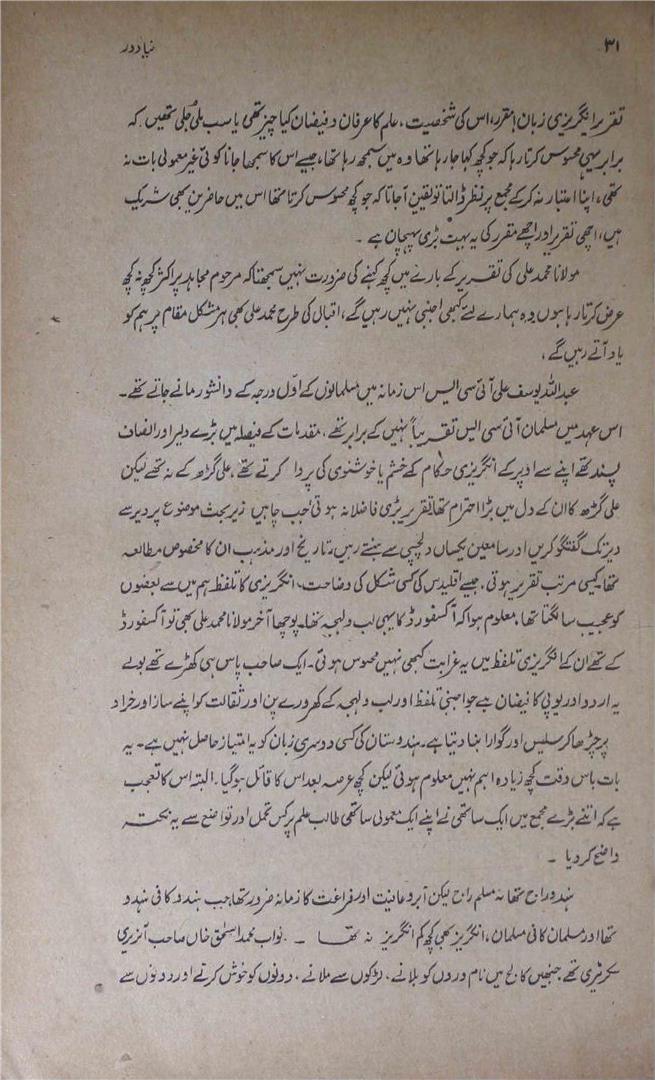 ۳۱ نیا دور
تقریر انگریزی زبان مقرر، اس کی شخصیت، علم کا عرفان و فیضان کیا چیز تھی یا سب ملی جلی تھیں، کہ
برابر یہی محسوس کرتا رہا کہ جو کچھ کہا جا رہا تھا وہ میں سمجھ رہا تھا، جیسے اس کا سمجھا جانا کوئی غیر معمولی بات نہ
تھی، اپنا اعتبار نہ کر کے مجمع پر نظر ڈالتا تو یقین آجاتا کہ جو کچھ محسوس کرتا تھا اس میں حاضرین بھی شریک
ہیں، اچھی تقریر اور اچھے مقرر کی یہ بہت بڑی پہچان ہے ۔
مولانا محمد علی کی تقریر کے بارے میں کچھ کہنے کی ضرورت نہیں سمجھتا کہ مرحوم مجاہد پر اکثر کچھ نہ کچھ
عرض کرتا رہا ہوں وہ ہمارے لئے کبھی اجنبی نہیں رہیں گے، اقبال کی طرح محمد علی بھی ہر مشکل مقام پر ہم کو
یاد آتے رہیں گے،
عبداللہ یوسف علی آئی سی ایس اس زمانہ میں مسلمانوں کے اوّل درجہ کے دانشور مانے جاتے تھے۔
اس عہد میں مسلمان آئی سی ایس تقریباً نہیں کے برابر تھے، مقدمات کے فیصلہ میں بڑے دلیر اور انصاف
پسند تھے اپنے سے اوپر کے انگریزی حکام کے خشم یا خوشنودی کی پروا کرتے تھے، علی گڑھ کے نہ تھے لیکن
علی گڑھ کا ان کے دل میں بڑا احترام تھا، تقریر بڑی فاضلانہ ہوتی، جب چاہیں زیر بحث موضوع پر دیر سے
دیر تک گفتگو کریں اور سامعین یکساں دلچسپی سے سنتے رہیں، تاریخ اور مذہب ان کا مخصوص مطالعہ
تھا، کیسی مرتب تقریر ہوتی، جیسے اقلیدس کی کسی شکل کی وضاحت، انگریزی کا تلفظ ہم میں سے بعضوں
کو عجیب سا لگتا تھا، معلوم ہوا کہ آکسفورڈ کا یہی لب و لہجہ تھا۔ پوچھا آخر مولانا محمد علی بھی تو آکسفورڈ
کے تھے ان کے انگریزی تلفظ میں یہ غرابت کبھی نہیں محسوس ہوتی۔ ایک صاحب پاس ہی کھڑے تھے بولے
یہ اردو اور یوپی کا فیضان ہے جو اجنبی تلفظ اور لب و لہجہ کے کھردرے پن اور ثقالت کو اپنے ساز اور خراد
پر چڑھا کر سلیس اور گوارا بنا دیتا ہے۔ ہندوستان کی کسی دوسری زبان کو یہ امتیاز حاصل نہیں ہے۔ یہ
بات باس وقت کچھ زیادہ اہم نہیں معلوم ہوئی لیکن کچھ عرصہ بعد اس کا قائل ہو گیا۔ البتہ اس کا تعجب
ہے کہ اتنے بڑے مجمع میں ایک ساتھی نے اپنے ایک معمولی ساتھی طالب علم پر کس تحمل اور تواضع سے یہ نکتہ
واضح کر دیا ۔
ہندو راج تھا نہ مسلم راج لیکن آبرو عافیت اور فراغت کا زمانہ ضرور تھا جب ہندو کافی ہندو
تھا اور مسلمان کافی مسلمان، انگریز بھی کچھ کم انگریز نہ تھا ۔ نواب محمد اسحٰق خاں صاحب آنریری
سکرٹیری تھے جنھیں کالج میں نام وروں کو بلانے، لڑکوں سے ملانے، دونوں کو خوش کرتے اور دونوں سے